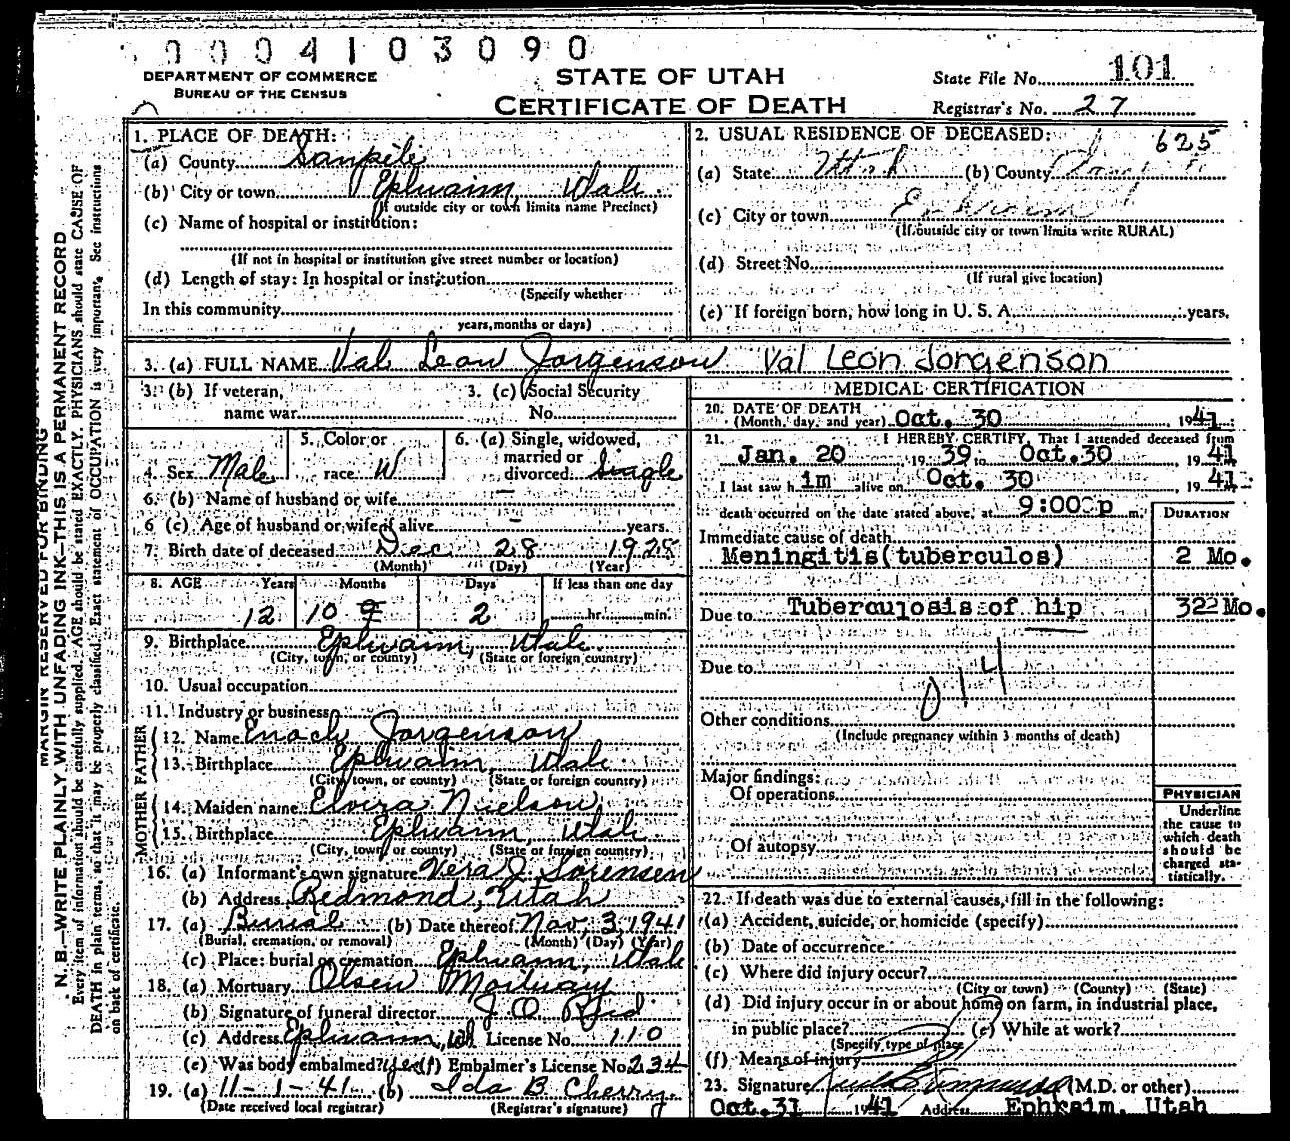 0004103090
DEPARTMENT OF COMMERCE
BUREAU OF THE CENSUS
STATE OF UTAH
CERTIFICATE OF DEATH
State File No. 101
Registrar's No. 27
MARGIN RESERVED FOR BINDING
N. B.—WRITE PLAINLY WITH UNFADING INK—THIS IS A PERMANENT RECORD
Every item of information should be carefully supplied. AGE should be stated EXACTLY. PHYSICIANS should state CAUSE OF
DEATH in plain terms, so that it may be properly classified. Exact statement of OCCUPATION is very important. See instructions
on back of certificate.
1. PLACE OF DEATH:
(a) County Sanpete
(b) City or town Ephraim, Utah.
(If outside city or town limits name Precinct)
(c) Name of hospital or institution:
(If not in hospital or institution give street number or location)
(d) Length of stay: In hospital or institution
(Specify whether
In this community
years, months or days)
2. USUAL RESIDENCE OF DECEASED: 625
(a) State Utah (b) County
(c) City or town Ephraim
(If outside city or town limits write RURAL)
(d) Street No.
(If rural give location)
(e) If foreign born, how long in U. S. A. years.
3. (a) FULL NAME Val Leon Jorgenson Val Leon Jorgenson
3. (b) If veteran,
name war
3. (c) Social Security
No.
4. Sex Male
5. Color or
race W
6. (a) Single, widowed,
married or
divorced single
6. (b) Name of husband or wife —
6 (c) Age of husband or wife if alive — years.
7. Birth date of deceased Dec 28 1928
(Month) (Day) (Year)
8. AGE Years Months Days If less than one day
12 10 9 2 hr. min.
9. Birthplace Ephraim, Utah.
(City, town, or county) (State or foreign country)
10. Usual occupation
11. Industry or business
FATHER
12. Name Enoch Jorgenson
13. Birthplace Ephraim, Utah
(City, town, or county) (State or foreign country)
MOTHER
14. Maiden name Elvira Nielson
15. Birthplace Ephraim, Utah
(City, town, or county) (State or foreign country)
16. (a) Informant's own signature Vera J. Sorensen
(b) Address Redmond, Utah
17. (a) Burial (b) Date thereof Nov. 3, 1941
(Burial, cremation, or removal) (Month) (Day) (Year)
(c) Place: burial or cremation Ephraim, Utah
18. (a) Mortuary Olsen Mortuary
(b) Signature of funeral director J. O.
(c) Address Ephraim, Ut License No. 110
(e) Was body embalmed? yes (f) Embalmer's License No. 234
19. (a) 11-1-41 (b) Ida B. Cherry
(Date received local registrar) (Registrar's signature)
MEDICAL CERTIFICATION
20. DATE OF DEATH
(Month, day, and year) Oct. 30 1941
21. I HEREBY CERTIFY, That I attended deceased from
Jan. 20 1939 to Oct.30 1941
I last saw him alive on Oct. 30 1941
death occurred on the date stated above, at 9:00 p m.
DURATION
Immediate cause of death
Meningitis(tuberculos) 2 Mo.
Due to Tuberculosis of hip 322 Mo.
Due to
014
Other conditions
(Include pregnancy within 3 months of death)
Major findings:
Of operations
Of autopsy
PHYSICIAN
Underline
the cause to
which death
should be
charged sta-
tistically.
22. If death was due to external causes, fill in the following:
(a) Accident, suicide, or homicide (specify)
(b) Date of occurrence
(c) Where did injury occur?
(City or town) (County) (State)
(d) Did injury occur in or about home, on farm, in industrial place,
in public place? (e) While at work?
(Specify type of place
(f) Means of injury
23. Signature (M.D. or other)
Oct.31 1941 Address Ephraim, Utah